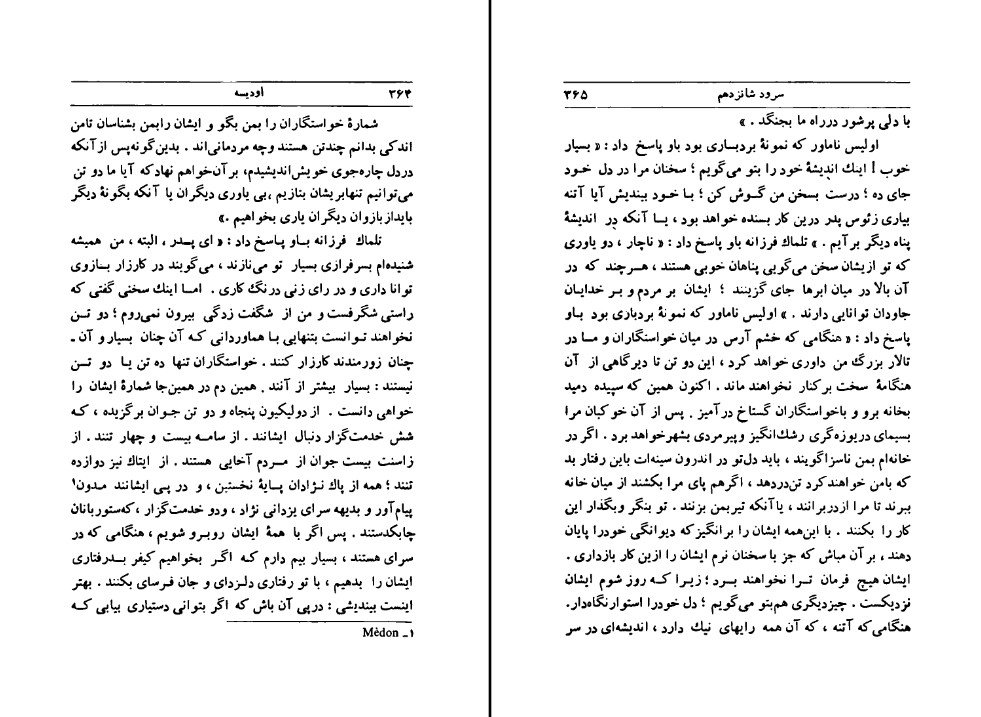 ۳۶۴ اودیسه
شمارهٔ خواستگاران را بمن بگو و ایشان رابمن بشناسان تامن
اندکی بدانم چندتن هستند وچه مردمانی‌اند. بدین‌گونه‌پس از آنکه
دردل چاره‌جوی خویش‌اندیشیدم، بر آن‌خواهم نهادکه آیا ما دو تن
می‌توانیم تنهابریشان بتازیم ،بی یاوری دیگران یا آنکه بگونهٔ دیگر
بایداز بازوان دیگران یاری بخواهیم .»
تلماك فرزانه باو پاسخ داد : « ای پدر ، البته ، من همیشه
شنیده‌ام بسرفرازی بسیار تو می‌نازند ، می‌گویند در کارزار بازوی
توانا داری و در رای زنی درنگ کاری . اما اینك سخنی گفتی که
راستی شگرفست و من از شگفت زدگی بیرون نمی‌روم ؛ دو تن
نخواهند توانست بتنهایی با هماوردانی که آن چنان بسیار و آن ـ
چنان زورمندند کارزار کنند . خواستگاران تنها ده تن یا دو تن
نیستند : بسیار بیشتر از آنند . همین دم در همین‌جا شمارهٔ ایشان را
خواهی دانست . از دولیکیون پنجاه و دو تن جوان برگزیده ، که
شش خدمت‌گزار دنبال ایشانند . از سامه بیست و چهار تنند . از
زاسنت بیست جوان از مردم آخایی هستند . از ایتاك نیز دوازده
تنند ؛ همه از پاك نژادان پایهٔ نخستین ، و در پی ایشانند مدون۱
پیام‌آور و بدیهه سرای یزدانی نژاد ، ودو خدمت‌گزار ، که‌ستوربانان
چابکدستند . پس اگر با همهٔ ایشان روبرو شویم ، هنگامی که در
سرای هستند ، بسیار بیم دارم که اگر بخواهیم کیفر بدرفتاری
ایشان را بدهیم ، با تو رفتاری دلزدای و جان فرسای بکنند . بهتر
اینست بیندیشی : درپی آن باش که اگر بتوانی دستیاری بیابی که
۱ ـ Mèdon
سرود شانزدهم ۳۶۵
با دلی پرشور درراه ما بجنگد . »
اولیس ناماور که نمونهٔ بردباری بود باو پاسخ داد : « بسیار
خوب ! اینك اندیشهٔ خود را بتو می‌گویم ؛ سخنان مرا در دل خود
جای ده ؛ درست بسخن من گوش کن ؛ با خود بیندیش آیا آتنه
بیاری زئوس پدر درین کار بسنده خواهد بود ، یا آنکه در اندیشهٔ
پناه دیگر برآیم . » تلماك فرزانه باو پاسخ داد : « ناچار ، دو یاوری
که تو ازیشان سخن می‌گویی پناهان خوبی هستند ، هرچند که در
آن بالا در میان ابرها جای گزینند ؛ ایشان بر مردم و بر خدایان
جاودان توانایی دارند . » اولیس ناماور که نمونهٔ بردباری بود باو
پاسخ داد : « هنگامی که خشم آرس در میان خواستگران و ما در
تالار بزرگ من داوری خواهد کرد ، این دو تن تا دیرگاهی از آن
هنگامهٔ سخت برکنار نخواهند ماند . اکنون همین که سپیده دمید
بخانه برو و باخواستگاران گستاخ درآمیز . پس از آن خوکبان مرا
بسیمای دریوزه‌گری رشك‌انگیز وپیرمردی بشهرخواهد برد . اگر در
خانه‌ام بمن ناسزاگویند ، باید دل‌تو در اندرون سینه‌ات باین رفتار بد
که بامن خواهندکرد تن‌دردهد ، اگرهم پای مرا بکشند از میان خانه
ببرند تا مرا ازدربرانند ، یاآنکه تیربمن بزنند . تو بنگر وبگذار این
کار را بکنند . با این‌همه ایشان را برانگیزکه دیوانگی خودرا پایان
دهند ، بر آن مباش که جز با سخنان نرم ایشان را ازین کار بازداری .
ایشان هیچ فرمان ترا نخواهند برد ؛ زیرا که روز شوم ایشان
نزدیکست . چیزدیگری هم‌بتو می‌گویم ؛ دل خودرا استوارنگاه‌دار.
هنگامی‌که آتنه ، که آن همه رایهای نیك دارد ، اندیشه‌ای در سر